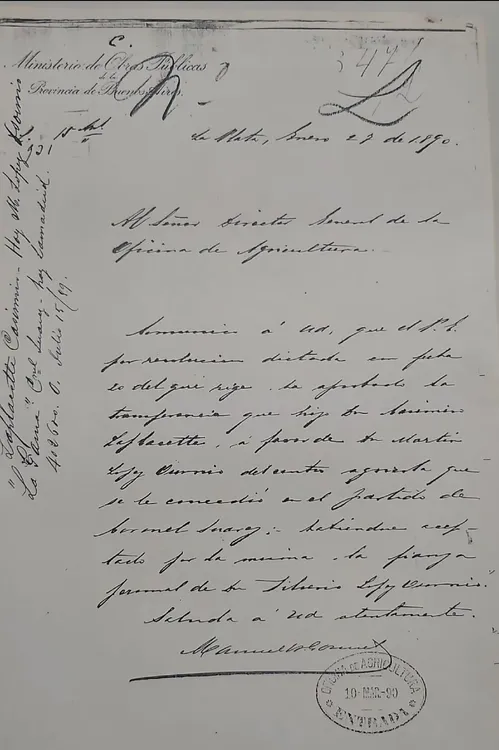 Ministerio de Obras Públicas
de la
Provincia de Buenos Aires.
La Plata, Enero 27 de 1890.
Al Señor Director General de la
Oficina de Agricultura.
Comunico á Ud, que el P. E.
por resolucion dictada en fecha
20 del que rige, ha aprobado la
transferencia que hizo Dn Casimiro
Laplacette, á favor de Dn Martin
Lopez Osornio del centro agricola que
se le concedió en el partido de
Coronel Suarez; habiendose acep-
tado por la misma la fianza
personal de Dn Silverio Lopez Osornio.
Saluda á Ud atentamente.
Manuel
OFICINA DE AGRICULTURA
10-MAR-90
ENTRADA
"Laplacette Casimiro - Hoy M. Lopez Osornio
La Curva" Cnel Suarez - hoy Lamadrid.
Julio 15/89.